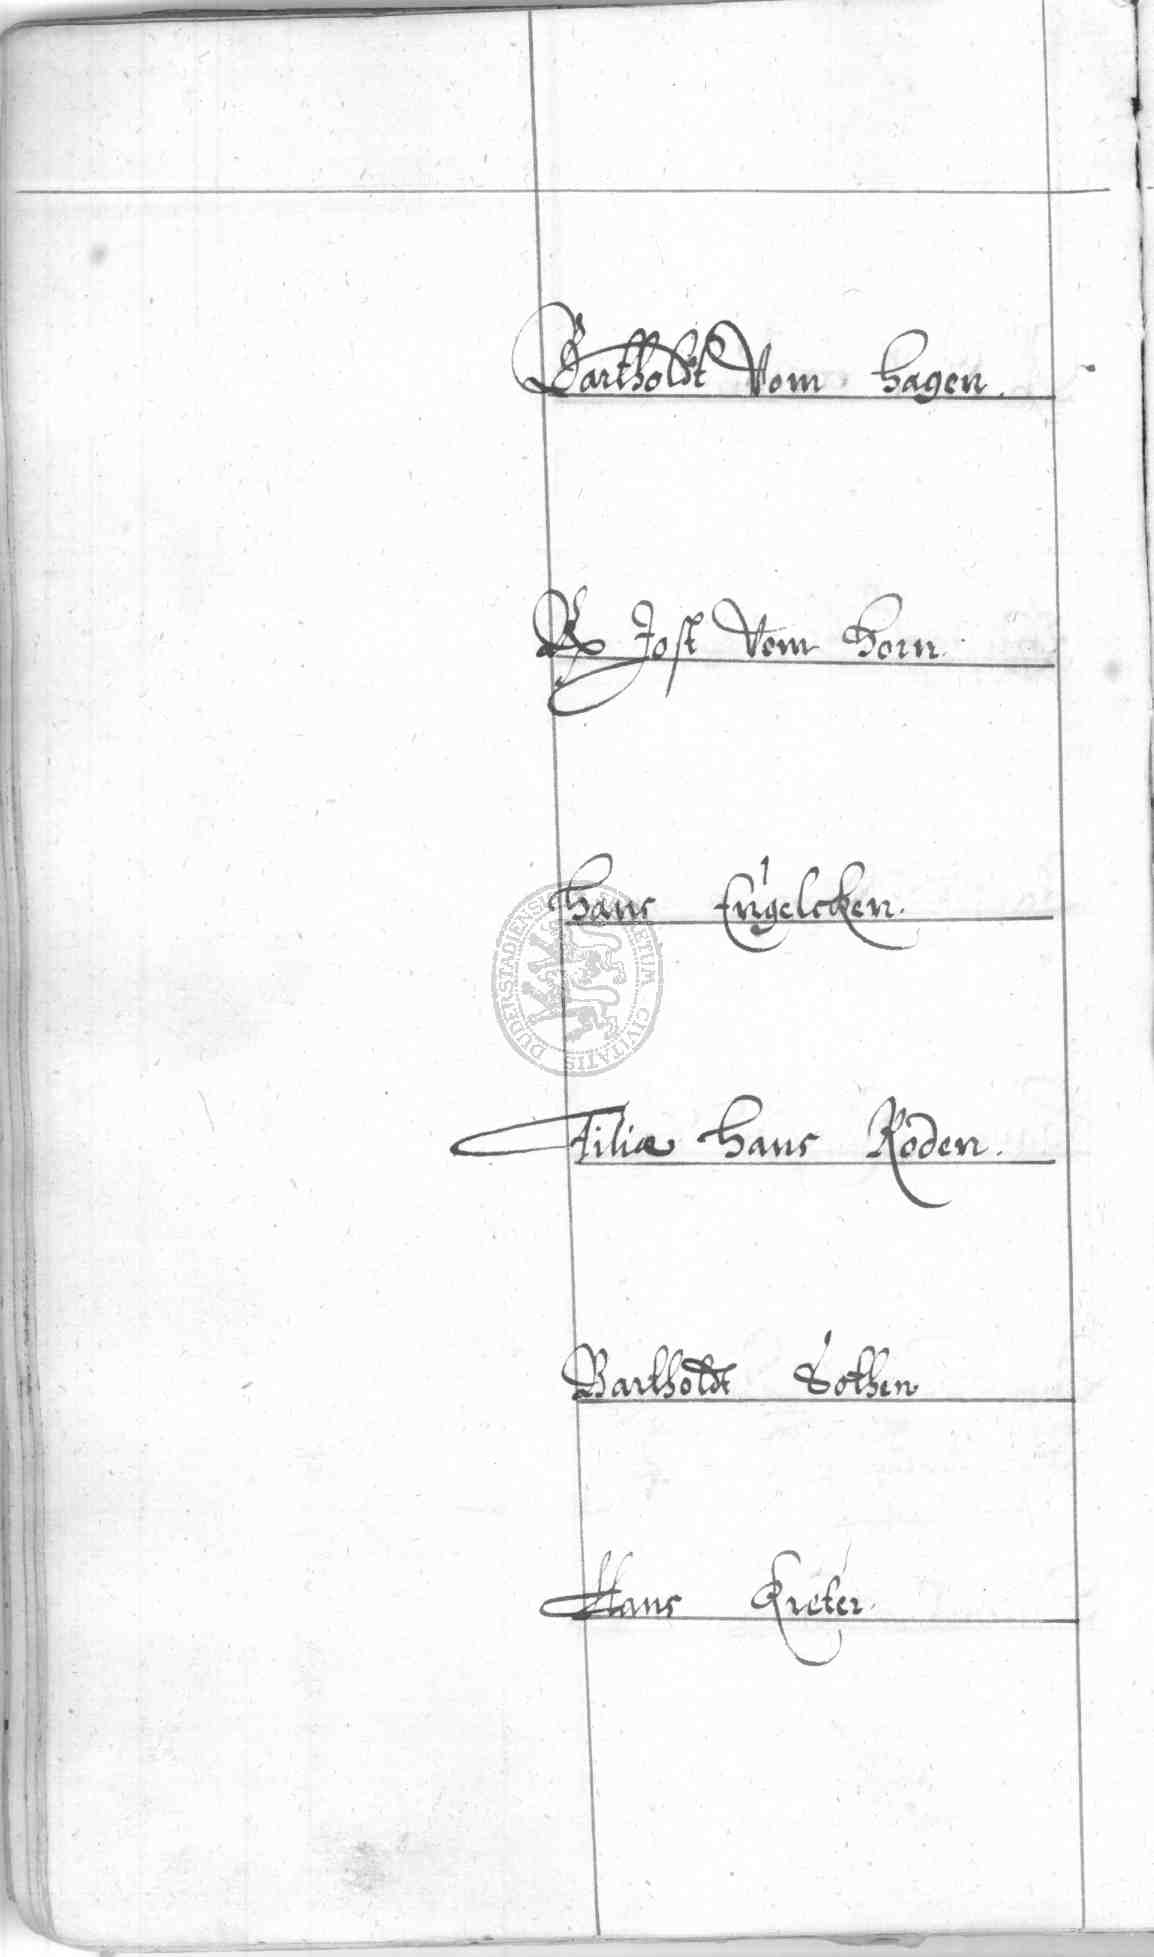 Bartholdt Vom Hagen.
Jost Vom Horn.
Hans Engelcken.
Filiæ Hans Roden.
Bartholdt Bothen
Hans Kreter.
DUDERSTADIENSE CIVITATIS